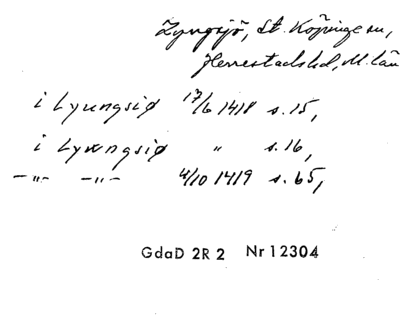 Lyngsjö, St. Köpinge sn,
Herrestads hd, M. län
i Lyungsiø 17/6 1418 s. 15,
i Lywngsiø " s. 16,
-"- -"- 4/10 1419 s. 65,
GdaD 2R 2 Nr 12304